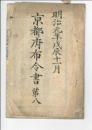 明治元年戊辰十一月
京都府布令書 第八